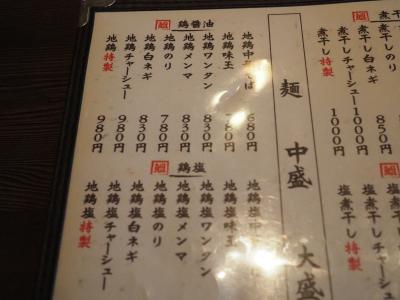 麺
中盛
大盛
煮干
煮干しのり 850円
煮干し白ネギ
煮干しチャーシュー 1000円
煮干し特製 1000円
塩煮干
塩煮干しのり
塩煮干し白ネギ
塩煮干しチャーシュー
塩煮干し特製
麺 鶏醤油
地鶏中華そば 680円
地鶏味玉 780円
地鶏ワンタン 830円
地鶏メンマ 830円
地鶏のり 780円
地鶏白ネギ 830円
地鶏チャーシュー 980円
地鶏特製 980円
麺 鶏塩
地鶏塩味玉
地鶏塩ワンタン
地鶏塩メンマ
地鶏塩のり
地鶏塩白ネギ
地鶏塩チャーシュー
地鶏塩特製